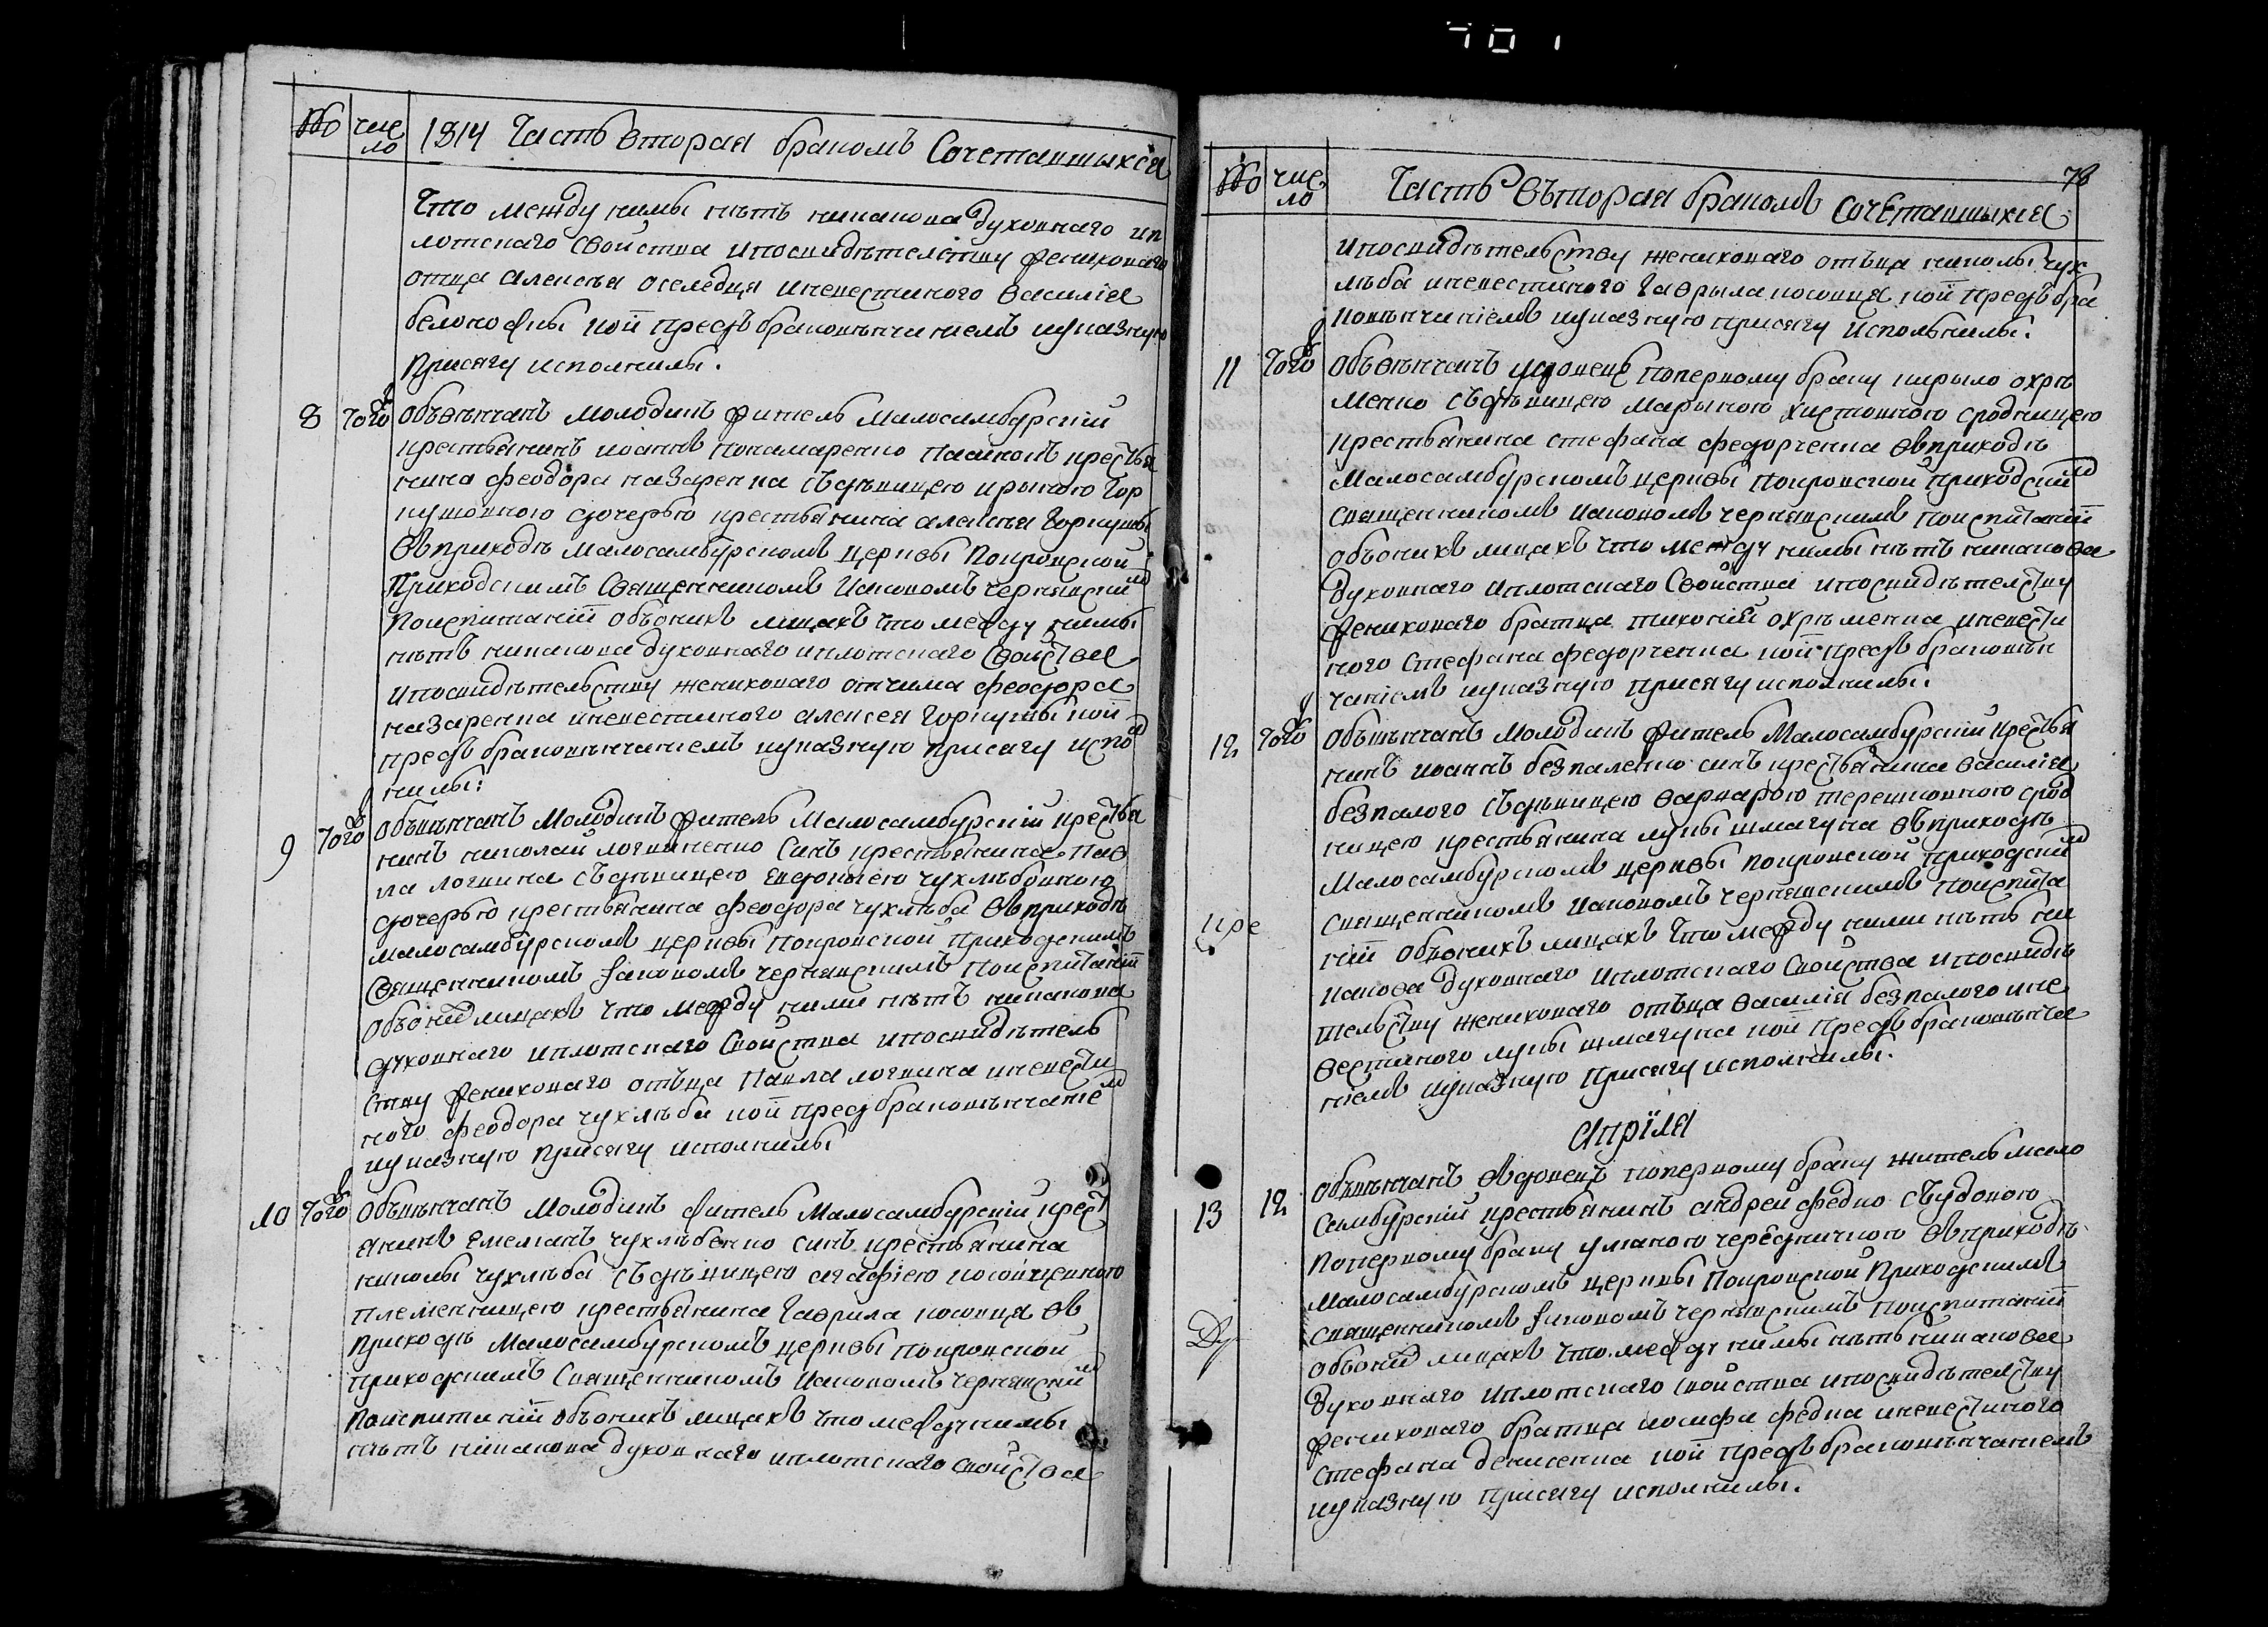 чис
ло
1814 Часть вторая бракомъ Сочетавшыхся
что между нимы нѣтъ никакова духовнаго ип
лотскаго Свойства ипосвидѣтелству жениховаго
отца алексѣя оселедця иневестиного василія
белоножки кои предъ браковѣнчаніемъ иуказную
присягу исполнилы.
8 Того ж Обьвѣнчанъ молодикъ житель Малосамбурскій
крестьянинъ иоаннъ понамаренко пасинокъ крестья
нина феодора назаренка съдѣвицею ириною Гор
кушовною дочерью крестьянина алексѣя Горкушы
въприходѣ малосамбурскомъ церквы Покровской
Приходскимъ Священникомъ Иаковомъ чернявским
Поиспитаніи обьонихъ лицахъ что между нимы
нѣтъ никакова духовнаго иплотскаго Свойства
ипосвидѣтельству жениховаго отчима феодора
назаренка иневестиного алексея горкушы кои
предъ браковѣнчаніемъ иуказную присягу испол
нилы:
9 Того ж Обьвѣнчанъ Молодикъ житель Малосамбурскій крестья
нинъ николай логвиненко Синъ крестьянина Пав
ла логвина съдѣвицею евдокиею чухлѣбовною
дочерью крестьянина феодора чухлѣба въприходѣ
малосамбурскомъ церквы покровской приходскимъ
Священникомъ Іаковомъ чернявскимъ Поиспитаніи
обьоних лицахъ что между ними нѣтъ никакова
духовнаго иплотскаго Свойства ипосвидѣтель
ству жениховаго отьца Павла логвина иневести
ного феодора чухлѣба кои предъ браковѣнчаніем
иуказную присягу исполнилы
10 Того ж Обьвѣнчанъ молодикъ житель Малосамбурскій крест
янинъ емелианъ чухлѣбенко синъ крестьянина
николы чухлѣба съдѣвицею агафіею косовцевною
племенницею крестьянина гаврила косовця въ
приходѣ малосамбурскомъ церквы покровской
приходскимъ Священникомъ Иаковомъ чернявским
поиспитаніи обьонихъ лицахъ что между нимы
нѣтъ нікакова духовнаго иплотскаго свойства
78
чис
ло
Часть Въторая бракомъ сочетавшыхся
ипосвидѣтельству жениховаго отьца николы чух
лѣба иневестиного гаврыла косовця кои предъ бра
ковѣнчаніемъ иуказную присягу испольнилы.
11 Того ж Обьвѣнчанъ вдовецъ поперв​ому браку кирыло охрѣ
менко съдѣвицею марыною хистовною сродницею
крестьянина стефана федорченка въприходѣ
малосамбурскомъ церквы покровской приходским
священникомъ иаковомъ чернявскимъ поиспитаніи
обьонихъ лицахъ что между нимы нѣтъ никакова
духовнаго иплотскаго Свойства ипосвидѣтелству
жениховаго братца тихоній охрѣменка иневести
ного стефана федорченка кои предъ браковѣн
чаніемъ иуказную присягу исполнилы.
12 Того ж Обьвѣнчанъ молодикъ житель Малосамбурскій крестья
нинъ иоаннъ безпаленко синъ крестьянина василія
безпалого съдѣвицею варварою терешковною срод
ницею крестьянина лукы шмагуна въприходѣ
малосамбурскомъ церквы покровской приходским
священникомъ иаковомъ чернявскимъ поиспита
ніи обьонихъ лицахъ что между ними нѣтъ ни
какова духовнаго иплотскаго Свойства ипосвидѣ
тельству жениховаго отьца василія безпалого ине
вестиного лукы шмагуна кои предъ браковѣнча
ніемъ иуказную присягу исполнилы.
апріля
13 12 Обьвѣнчанъ въдовецъ поперв​ому браку житель мало
самбурскій крестьянинъ андрей федко съудовою
поперв​ому браку улианою чередничкою въприходѣ
малосамбурскомъ церквы Покровской Приходскимъ
священникомъ Іаковомъ чернявскимъ поиспитаніи
обьоних лицахъ что между нимы нѣтъ никакова
духовнаго иплотскаго свойства ипосвидѣтелству
жениховаго братца иосифа федка иневестиного
стефана денисенка кои предъ браковѣнчаніемъ
иуказную присягу исполнилы.